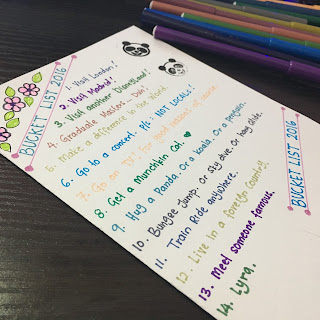 BUCKET LIST 2016
1. Visit London!
2. Visit Madrid!
3. Visit another Disneyland!
4. Graduate Masters - Dec!
5. Make a difference to the world
6. Go to a concert. NOT LOCAL!
7. Go on "TV". For good reasons of course.
8. Get a Munchkin Cat. ♥
9. Hug a Panda. Or a koala. Or a penguin.
10. Bungee Jump. Or sky dive. Or hang glide.
11. Train Ride anywhere.
12. Live in a foreign country!!
13. Meet someone famous.
14. Lyra.
BUCKET LIST 2016